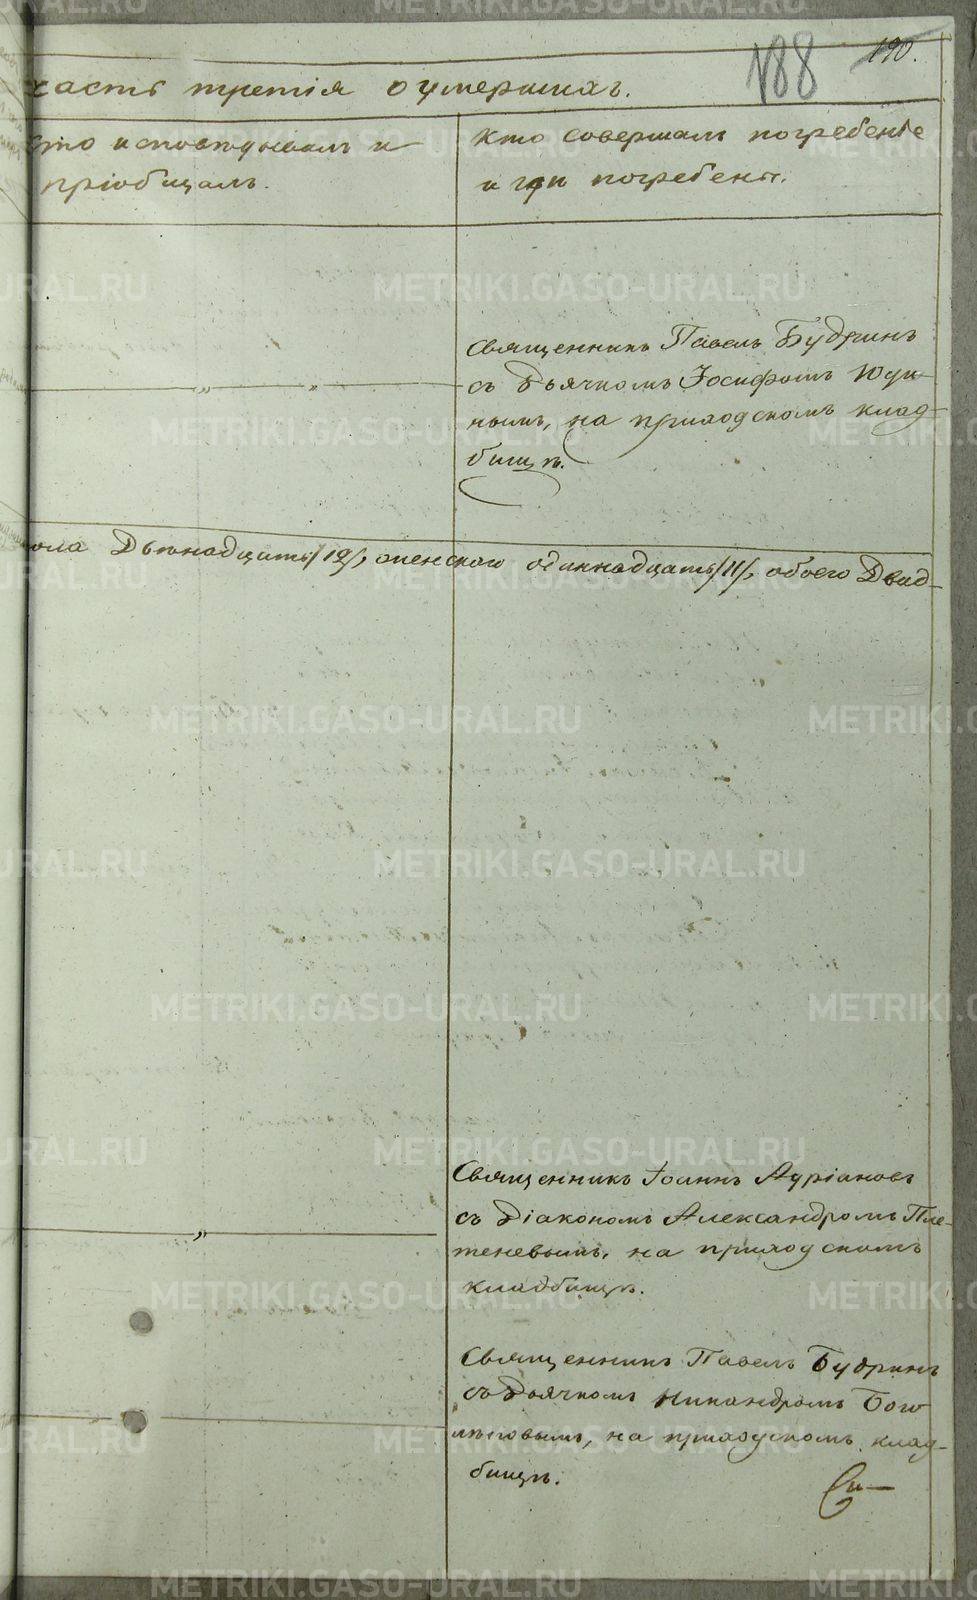 188
190.
часть третія о умершихъ.
кто исповѣдывалъ и
пріобщалъ.
Кто совершалъ погребеніе
и гдѣ погребены.
Священникъ Павелъ Будринъ
съ Дьячкомъ Іосифомъ Юди-
нымъ, на приходскомъ клад-
бищѣ.
пола Двѣнадцать /12/, женскаго одиннадцать /11/, обоего Двад-
Священникъ Іоаннъ Адріановъ
съ Діакономъ Александромъ Пле-
теневымъ, на приходскомъ
кладбищѣ.
Священникъ Павелъ Будринъ
съ Дьячкомъ Никандромъ Бого
лѣповымъ, на приходскомъ клад-
бищѣ.
METRIKI.GASO-URAL.RU